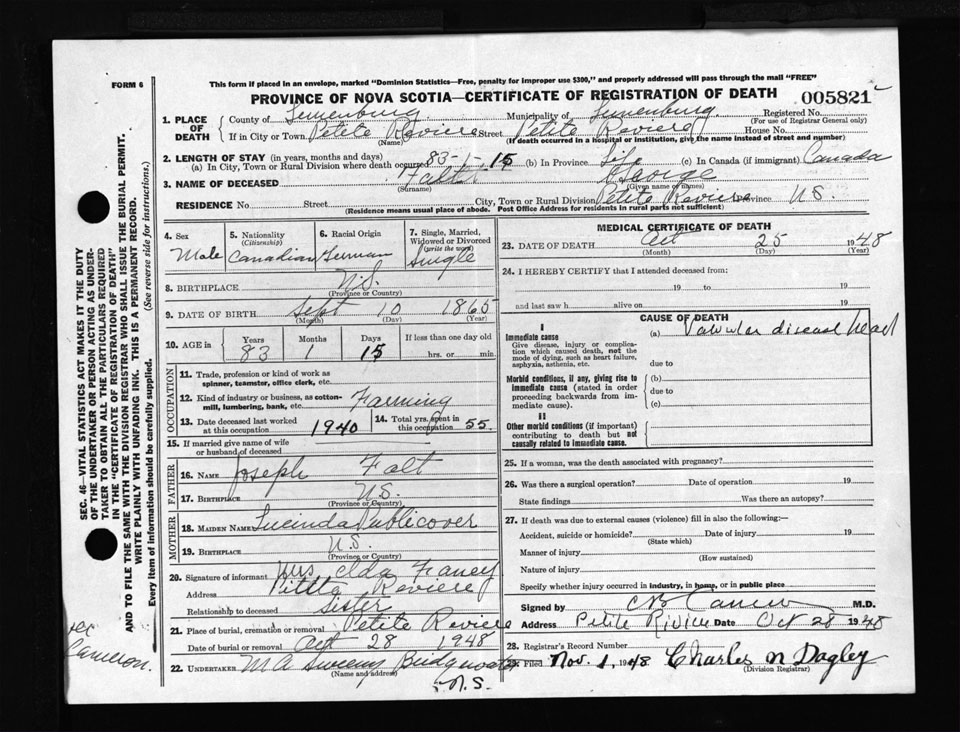 FORM 6
This form if placed in an envelope, marked "Dominion Statistics—Free, penalty for improper use $300," and properly addressed will pass through the mail "FREE"
PROVINCE OF NOVA SCOTIA—CERTIFICATE OF REGISTRATION OF DEATH 005821
1. PLACE OF DEATH
County of Lunenburg Municipality of Lunenburg Registered No.
(For use of Registrar General only)
If in City or Town Petite Reviere Street Petite Reviere House No.
(Name) (If death occurred in a hospital or institution, give the name instead of street and number)
2. LENGTH OF STAY (in years, months and days)
(a) In City, Town or Rural Division where death occurred 83-1-15 (b) In Province Life (c) In Canada (if immigrant) Canada
3. NAME OF DECEASED Falt George
(Surname) (Given name or names)
RESIDENCE No. Street City, Town or Rural Division Petite Reviere Province N.S.
(Residence means usual place of abode. Post Office Address for residents in rural parts not sufficient)
4. Sex Male
5. Nationality (Citizenship) Canadian
6. Racial Origin German
7. Single, Married, Widowed or Divorced (write the word) Single
8. BIRTHPLACE N.S.
(Province or Country)
9. DATE OF BIRTH Sept 10 1865
(Month) (Day) (Year)
10. AGE in Years Months Days If less than one day old
83 1 15 hrs. or min.
OCCUPATION
11. Trade, profession or kind of work as spinner, teamster, office clerk, etc.
12. Kind of industry or business, as cotton-mill, lumbering, bank, etc. Farming
13. Date deceased last worked at this occupation 1940
14. Total yrs. spent in this occupation 55.
15. If married give name of wife or husband of deceased —
FATHER
16. NAME Joseph Falt
17. BIRTHPLACE N.S.
(Province or Country)
MOTHER
18. MAIDEN NAME Lucinda Publicover
19. BIRTHPLACE N.S.
(Province or Country)
20. Signature of informant Mrs Elda Haney
Address Pitite Reviere
Relationship to deceased Sister
21. Place of burial, cremation or removal Petite Reviere
Date of burial or removal Oct 28 1948
22. UNDERTAKER M A Sweeny Bridgewater
(Name and address)
N.S.
MEDICAL CERTIFICATE OF DEATH
23. DATE OF DEATH Oct 25 1948
(Month) (Day) (Year)
24. I HEREBY CERTIFY that I attended deceased from:
19 to 19
and last saw h alive on 19
CAUSE OF DEATH
I
Immediate cause (a) Valvular disease heart
Give disease, injury or complication which caused death, not the mode of dying, such as heart failure, asphyxia, asthenia, etc.
due to
Morbid conditions, if any, giving rise to immediate cause (stated in order proceeding backwards from immediate cause).
(b)
due to
(c)
II
Other morbid conditions (if important) contributing to death but not causally related to immediate cause.
25. If a woman, was the death associated with pregnancy?
26. Was there a surgical operation? Date of operation 19
State findings Was there an autopsy?
27. If death was due to external causes (violence) fill in also the following:—
Accident, suicide or homicide? Date of injury 19
(State which)
Manner of injury
(How sustained)
Nature of injury
Specify whether injury occurred in industry, in home, or in public place
Signed by M.D.
Address Petite Riviere Date Oct 28 1948
28. Registrar's Record Number
29. Filed Nov. 1, 1948 Charles N Dagley
(Division Registrar)
SEC. 46—VITAL STATISTICS ACT MAKES IT THE DUTY
OF THE UNDERTAKER OR PERSON ACTING AS UNDER-
TAKER TO OBTAIN ALL THE PARTICULARS REQUIRED
IN THE "CERTIFICATE OF REGISTRATION OF DEATH"
AND TO FILE THE SAME WITH THE DIVISION REGISTRAR WHO SHALL ISSUE THE BURIAL PERMIT.
WRITE PLAINLY WITH UNFADING INK. THIS IS A PERMANENT RECORD.
Every item of information should be carefully supplied. (See reverse side for instructions.)
Cameron.